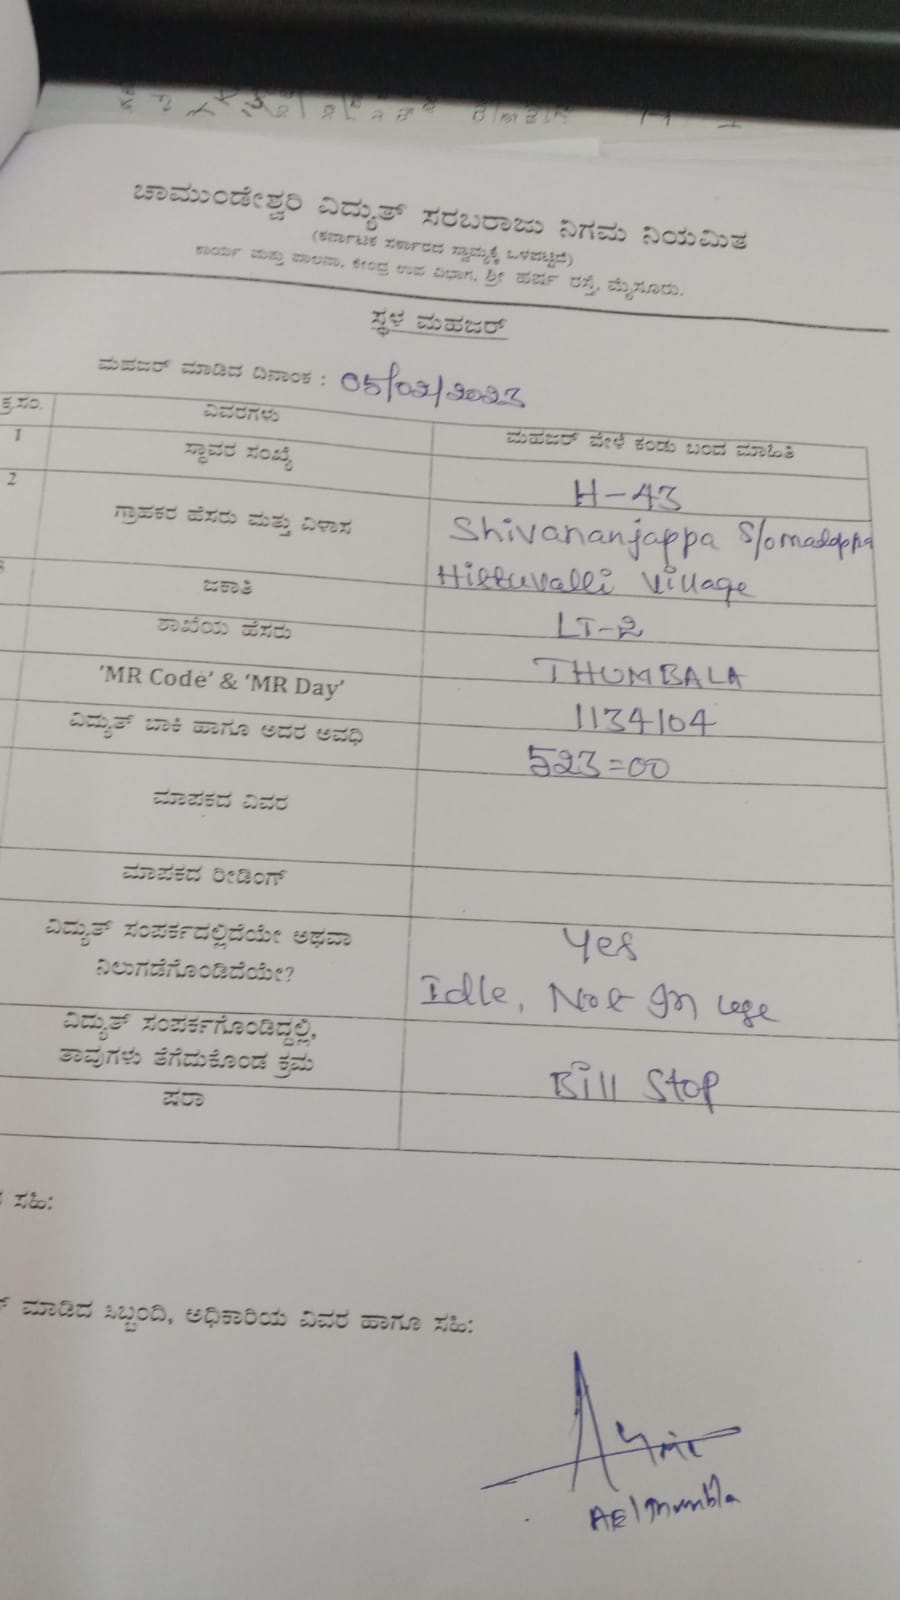 ಚಾಮುಂಡೇಶ್ವರಿ ವಿದ್ಯುತ್ ಸರಬರಾಜು ನಿಗಮ ನಿಯಮಿತ
(ಕರ್ನಾಟಕ ಸರ್ಕಾರದ ಸ್ವಾಮ್ಯಕ್ಕೆ ಒಳಪಟ್ಟಿದೆ)
ಕಾರ್ಯ ಮತ್ತು ಪಾಲನಾ, ಕೇಂದ್ರ ಉಪ ವಿಭಾಗ, ಶ್ರೀ ಹರ್ಷ ರಸ್ತೆ, ಮೈಸೂರು.
ಸ್ಥಳ ಮಹಜರ್
ಮಹಜರ್ ಮಾಡಿದ ದಿನಾಂಕ : 05/02/2023
ಕ್ರ.ಸಂ. ವಿವರಗಳು ಮಹಜರ್ ವೇಳೆ ಕಂಡು ಬಂದ ಮಾಹಿತಿ
1 ಸ್ಥಾವರ ಸಂಖ್ಯೆ H-43
2 ಗ್ರಾಹಕರ ಹೆಸರು ಮತ್ತು ವಿಳಾಸ Shivananjappa S/o madappa
Village
ಜಕಾತಿ LT-2
ಶಾಖೆಯ ಹೆಸರು THUMBALA
'MR Code' & 'MR Day' 1134104
ವಿದ್ಯುತ್ ಬಾಕಿ ಹಾಗೂ ಅದರ ಅವಧಿ 523=00
ಮಾಪಕದ ವಿವರ
ಮಾಪಕದ ರೀಡಿಂಗ್
ವಿದ್ಯುತ್ ಸಂಪರ್ಕದಲ್ಲಿದೆಯೇ ಅಥವಾ Yes
ನಿಲುಗಡೆಗೊಂಡಿದೆಯೇ? Idle, Not In use
ವಿದ್ಯುತ್ ಸಂಪರ್ಕಗೊಂಡಿದ್ದಲ್ಲಿ,
ತಾವುಗಳು ತೆಗೆದುಕೊಂಡ ಕ್ರಮ Bill Stop
ಷರಾ
ಸಹಿ:
ಮಾಡಿದ ಸಿಬ್ಬಂದಿ, ಅಧಿಕಾರಿಯ ವಿವರ ಹಾಗೂ ಸಹಿ: